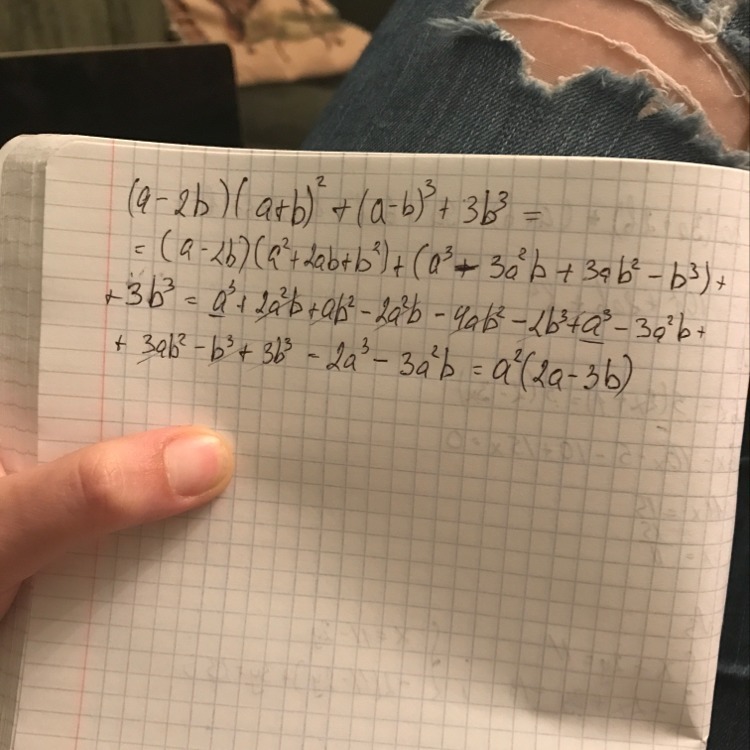 (a-2b)(a+b)² + (a-b)³ + 3b³ =
= (a-2b)(a²+2ab+b²)+(a³ - 3a²b + 3ab² - b³) +
+ 3b³ = a³ + 2a²b + ab² - 2a²b - 4ab² - 2b³ + a³ - 3a²b +
+ 3ab² - b³ + 3b³ - 2a³ - 3a²b = a²(2a-3b)